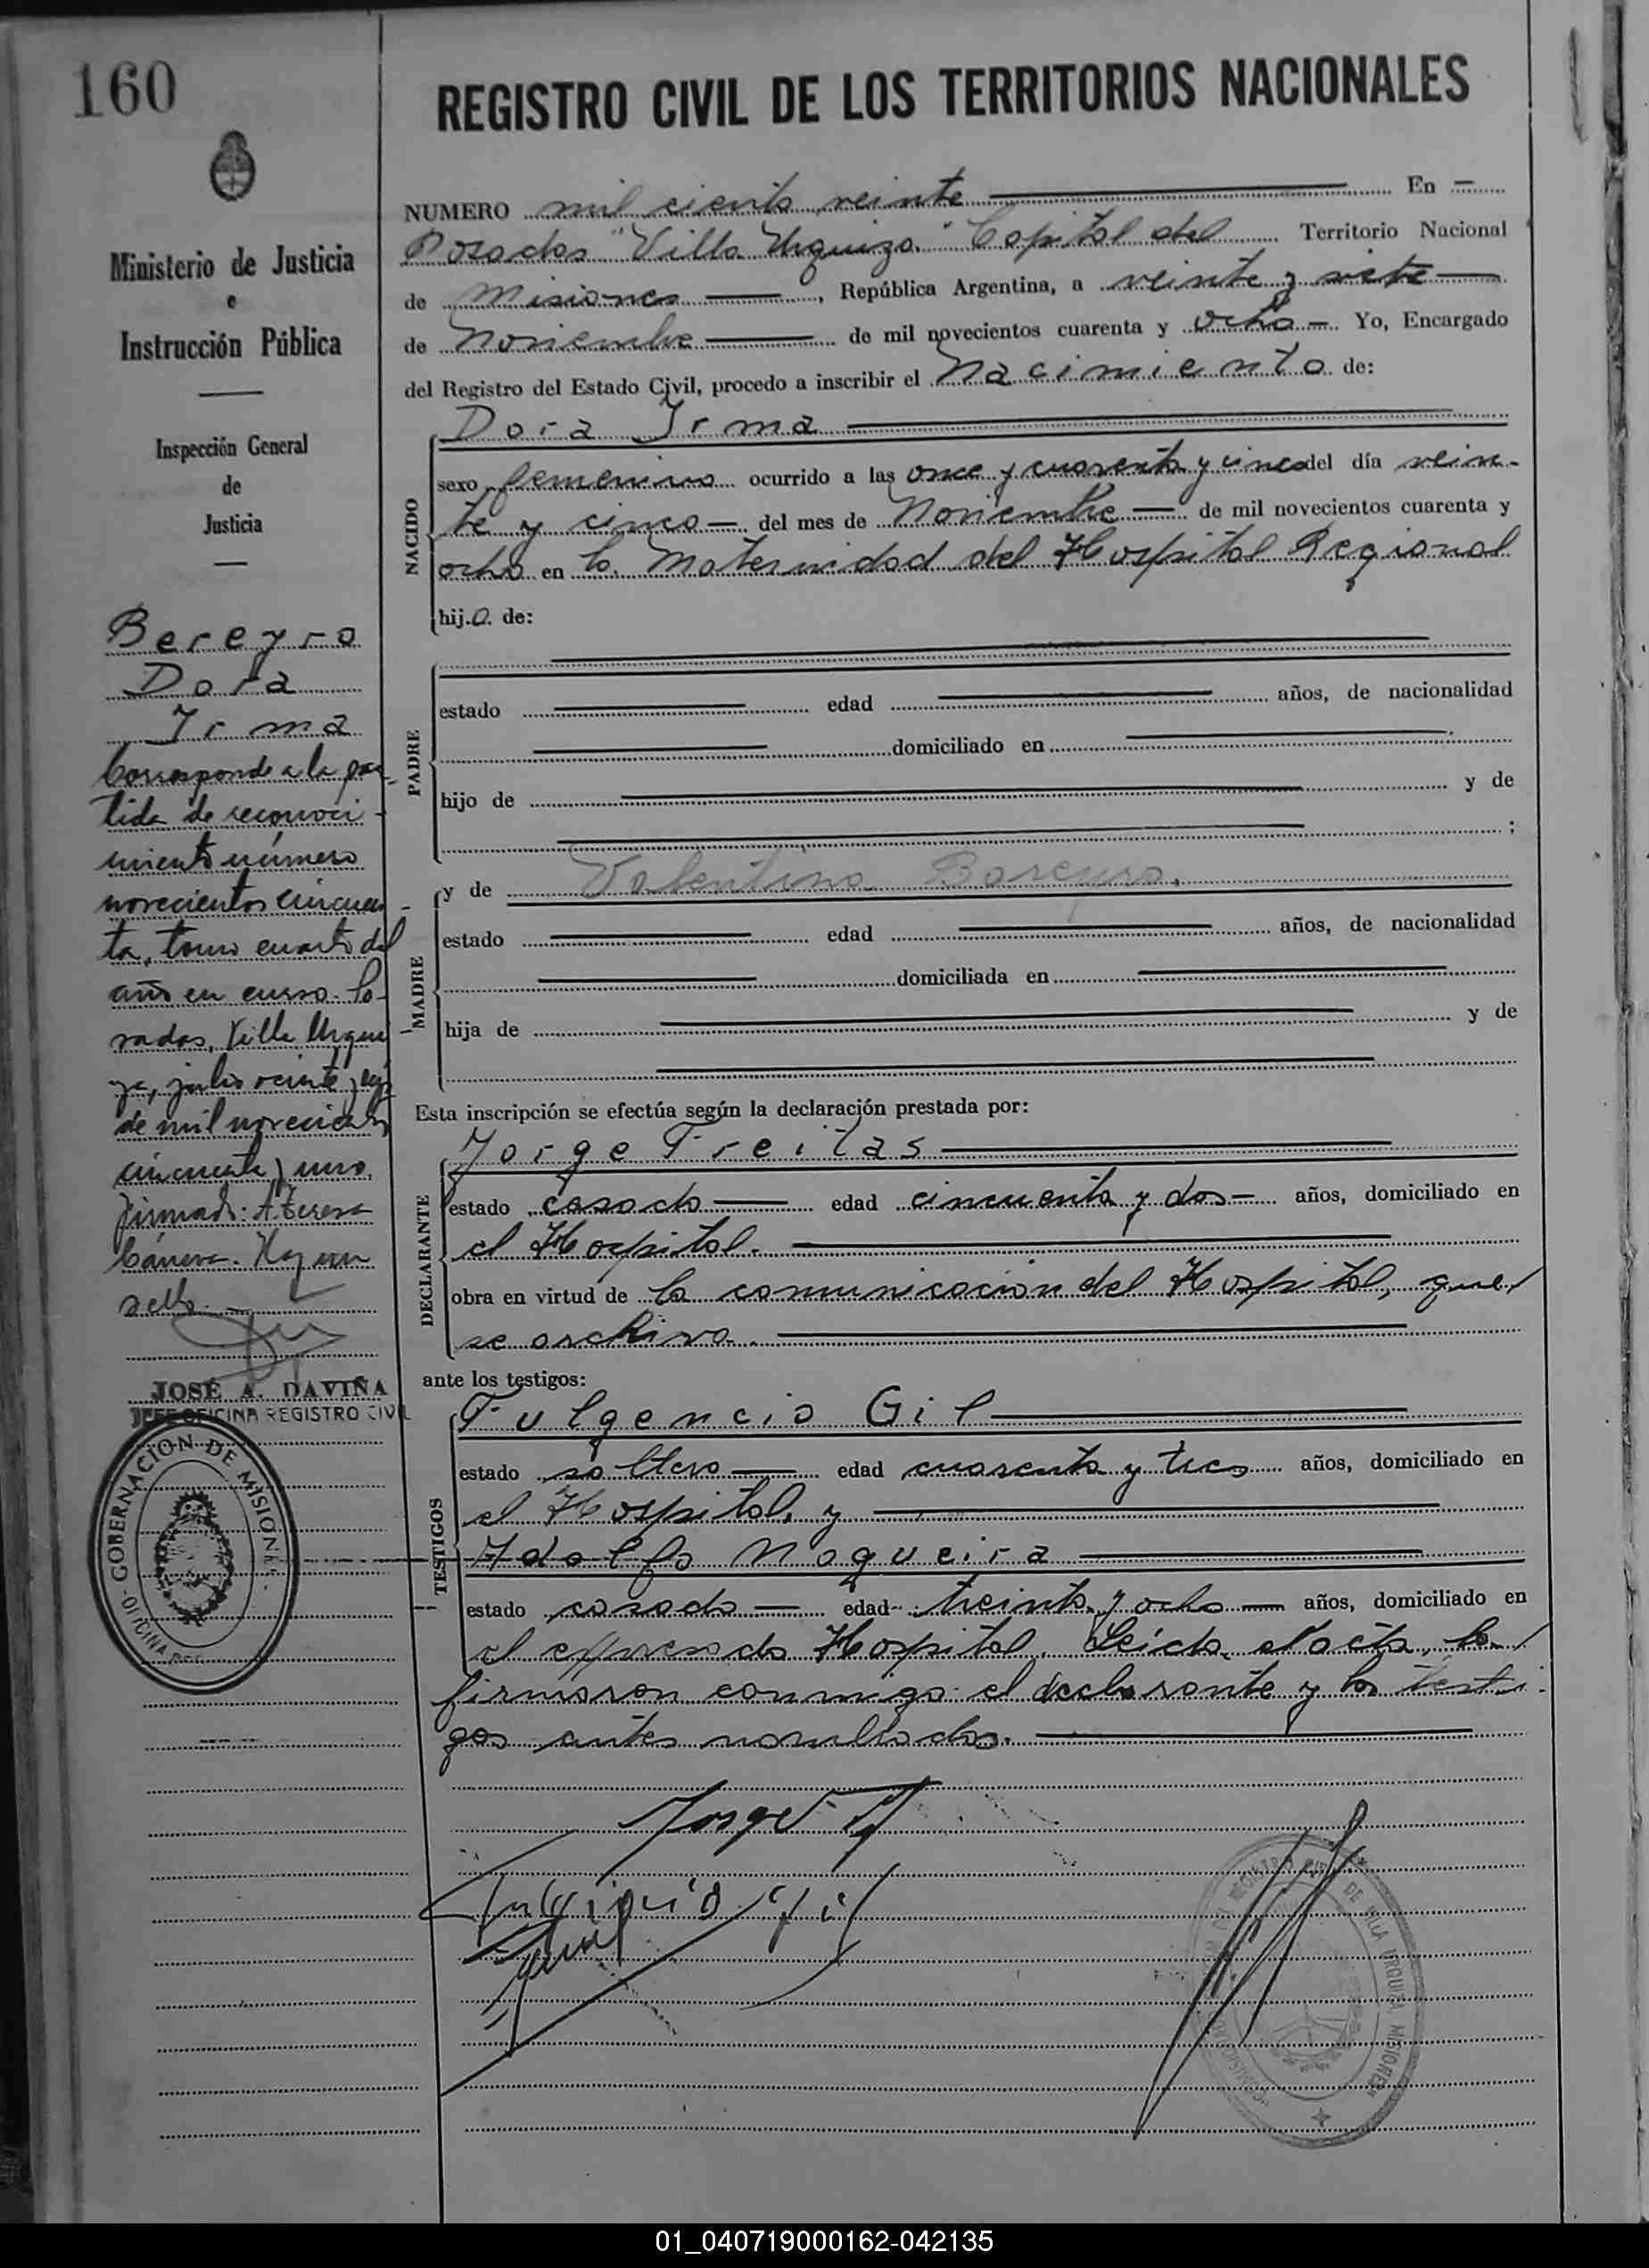 160
REGISTRO CIVIL DE LOS TERRITORIOS NACIONALES
Ministerio de Justicia
e
Instrucción Pública
Inspección General
de
Justicia
Bereyro
Dora
Irma
Corresponde a la par-
tida de reconoci-
miento número
novecientos cincuen-
ta, tomo cuarto del
año en curso. Po-
sadas, Villa Urqui-
za, julio veinte y
de mil novecientos
cincuenta y uno.
Firmado: A. Teresa
Hay un
sello.
JOSÉ A. DAVIÑA
JEFE OFICINA REGISTRO CIVIL
GOBERNACION DE MISIONES
OFICINA
NUMERO mil ciento veinte En
Posadas "Villa Urquiza." Capital del Territorio Nacional
de Misiones, República Argentina, a veinte y siete
de Noviembre de mil novecientos cuarenta y ocho Yo, Encargado
del Registro del Estado Civil, procedo a inscribir el Nacimiento de:
NACIDO
Dora Irma
sexo femenino ocurrido a las once y cuarenta y cinco del día vein-
te y cinco del mes de Noviembre de mil novecientos cuarenta y
ocho en la Maternidad del Hospital Regional
hija de:
PADRE
estado edad años, de nacionalidad
domiciliado en
hijo de y de
;
MADRE
y de Valentina Bareyro.
estado edad años, de nacionalidad
domiciliada en
hija de y de
Esta inscripción se efectúa según la declaración prestada por:
DECLARANTE
Jorge Freitas
estado casado edad cincuenta y dos años, domiciliado en
el Hospital.
obra en virtud de la comunicación del Hospital, que
se archiva.
ante los testigos:
TESTIGOS
Fulgencio Gil
estado soltero edad cuarenta y tres años, domiciliado en
el Hospital, y
Adolfo Nogueira
estado casado edad treinta y ocho años, domiciliado en
el expresado Hospital. Leída el acta, la
firmaron conmigo el declarante y los testi-
gos antes nombrados.
Jorge F
Fulgencio Gil
REGISTRO CIVIL DE VILLA URQUIZA MISIONES
01_040719000162-042135